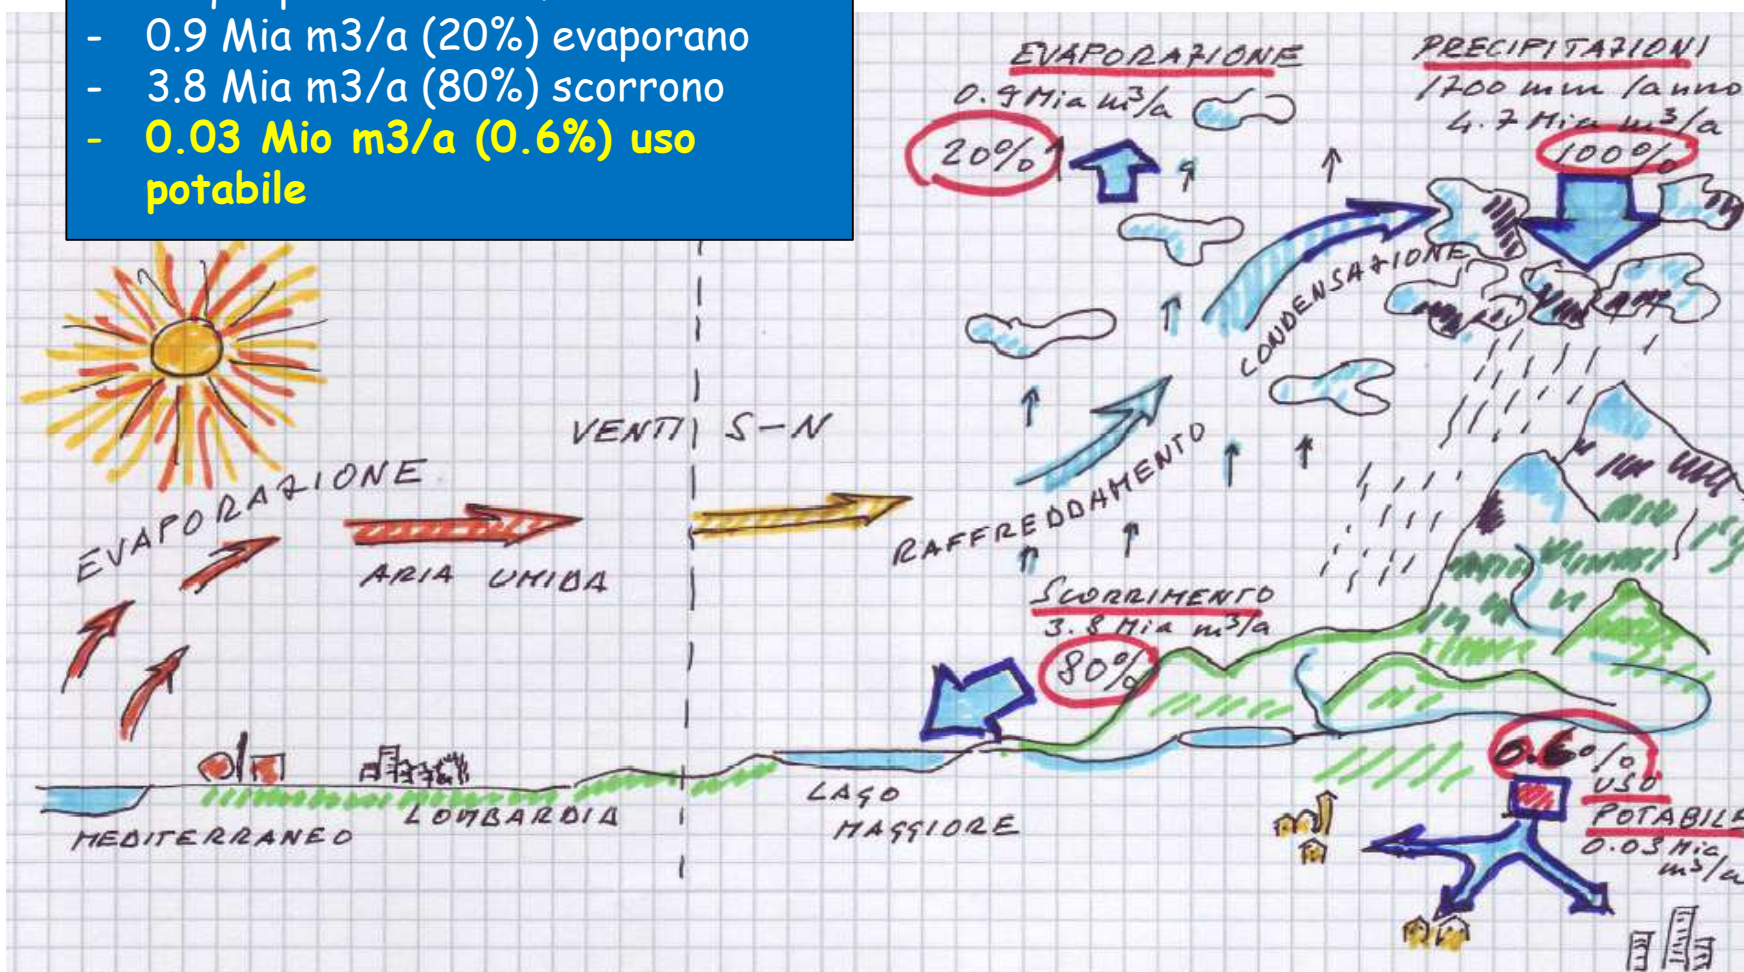 - 0.9 Mia m3/a (20%) evaporano
- 3.8 Mia m3/a (80%) scorrono
- 0.03 Mio m3/a (0.6%) uso
potabile
EVAPORAZIONE
0.9 Mia m³/a
20%
PRECIPITAZIONI
1700 mm/anno
4.7 Mia m³/a
100%
CONDENSAZIONE
VENTI S-N
EVAPORAZIONE
RAFFREDDAMENTO
ARIA UMIDA
SCORRIMENTO
3.8 Mia m³/a
80%
0.6%
USO
POTABILE
0.03 Mia
m³/a
LAGO
MAGGIORE
LOMBARDIA
MEDITERRANEO